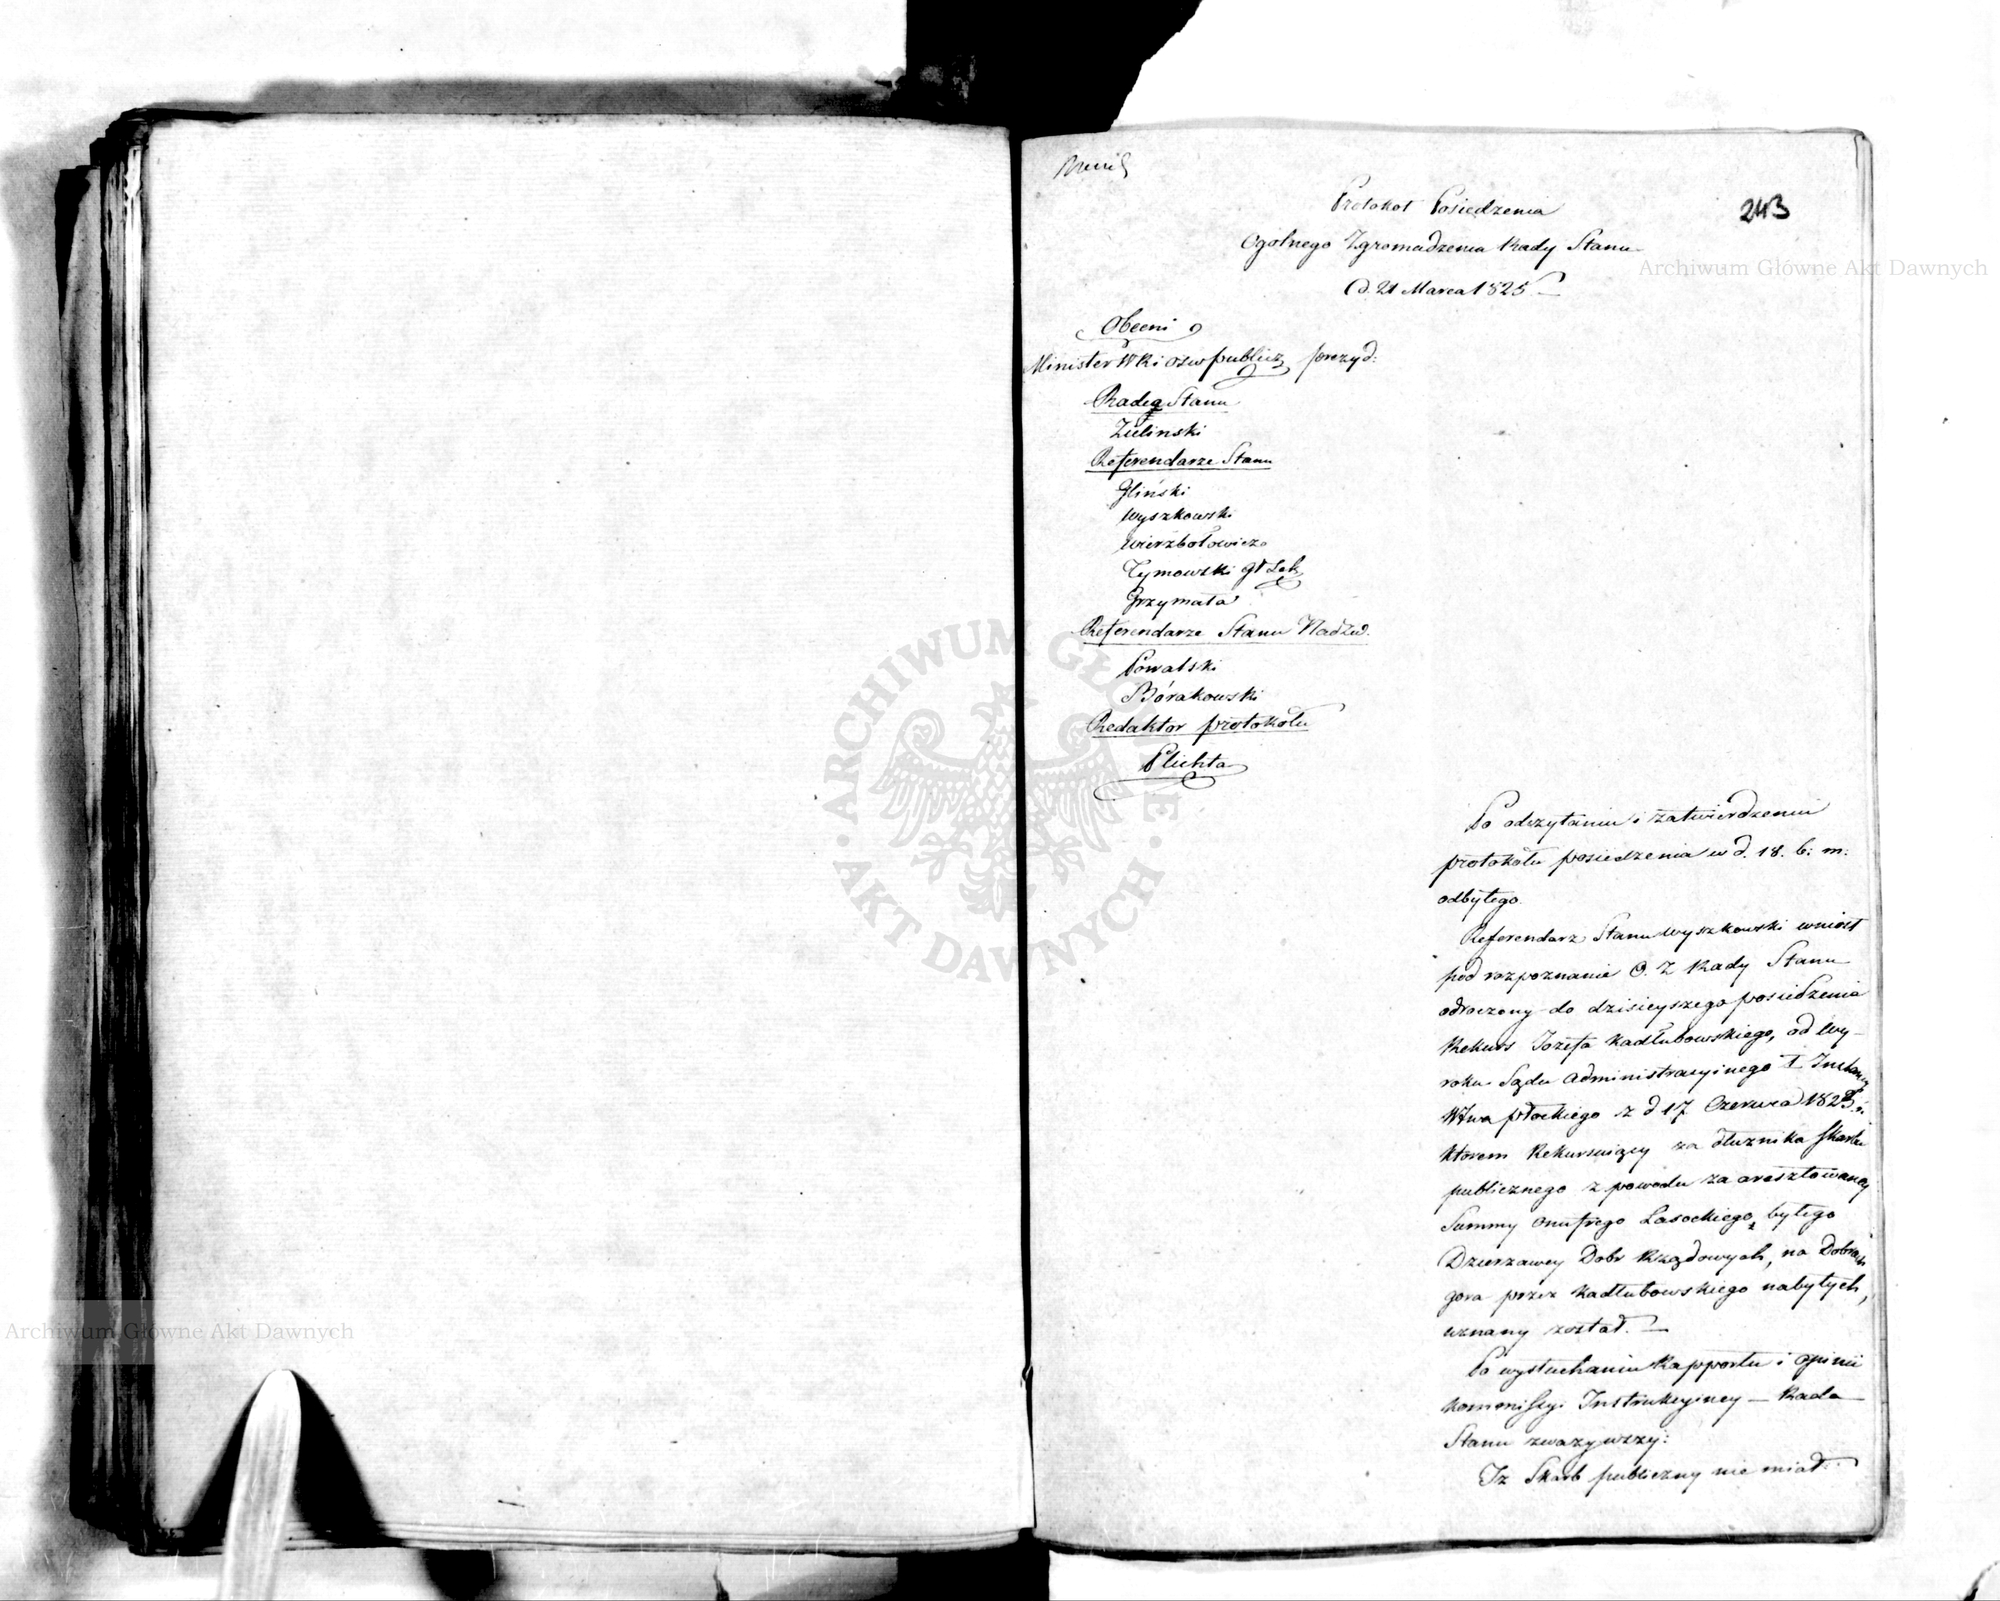 243
Protokół Posiedzenia
Ogólnego Zgromadzenia Rady Stanu
d. 21 Marca 1825.
Archiwum Główne Akt Dawnych
Obecni
Minister WR i Oświe publicz prezyd:
Radcą Stanu
Zieliński
Referendarze Stanu
Gliński
Wyszkowski
Wierzbołowicz
Tymowski gł Sek
Grzymała
Referendarze Stanu Nadzw.
Kowalski
Bórakowski
Redaktor protokółu
Plichta
ARCHIWUM GŁÓWNE
AKT DAWNYCH
Po odczytaniu i zatwierdzeniu
protokółu posiedzenia w d. 18. b: m:
odbytego.
Referendarz Stanu Wyszkowski wniósł
pod rozpoznanie O. Z Rady Stanu
odroczony do dzisieyszego posiedzenia
Rekurs Józefa Kadłubowskiego, od Wy-
roku Sądu Administracyinego I Instancyi
Wtwa płockiego z d 17 Czerwca
którem Rekursuiący za dłużnika Skarbu
publicznego z powodu zaaresztowaney
Summy Onufrego Lasockiego, byłego
Dzierzawcy Dobr Rządowych, na Dobrach
gora przez Kadłubowskiego nabytych,
uznany został. —
Po wysłuchaniu Rapportu i opinii
Kommissyi Instrukcyiney — Rada
Stanu zważywszy:
Iż Skarb publiczny nie miał
Archiwum Główne Akt Dawnych